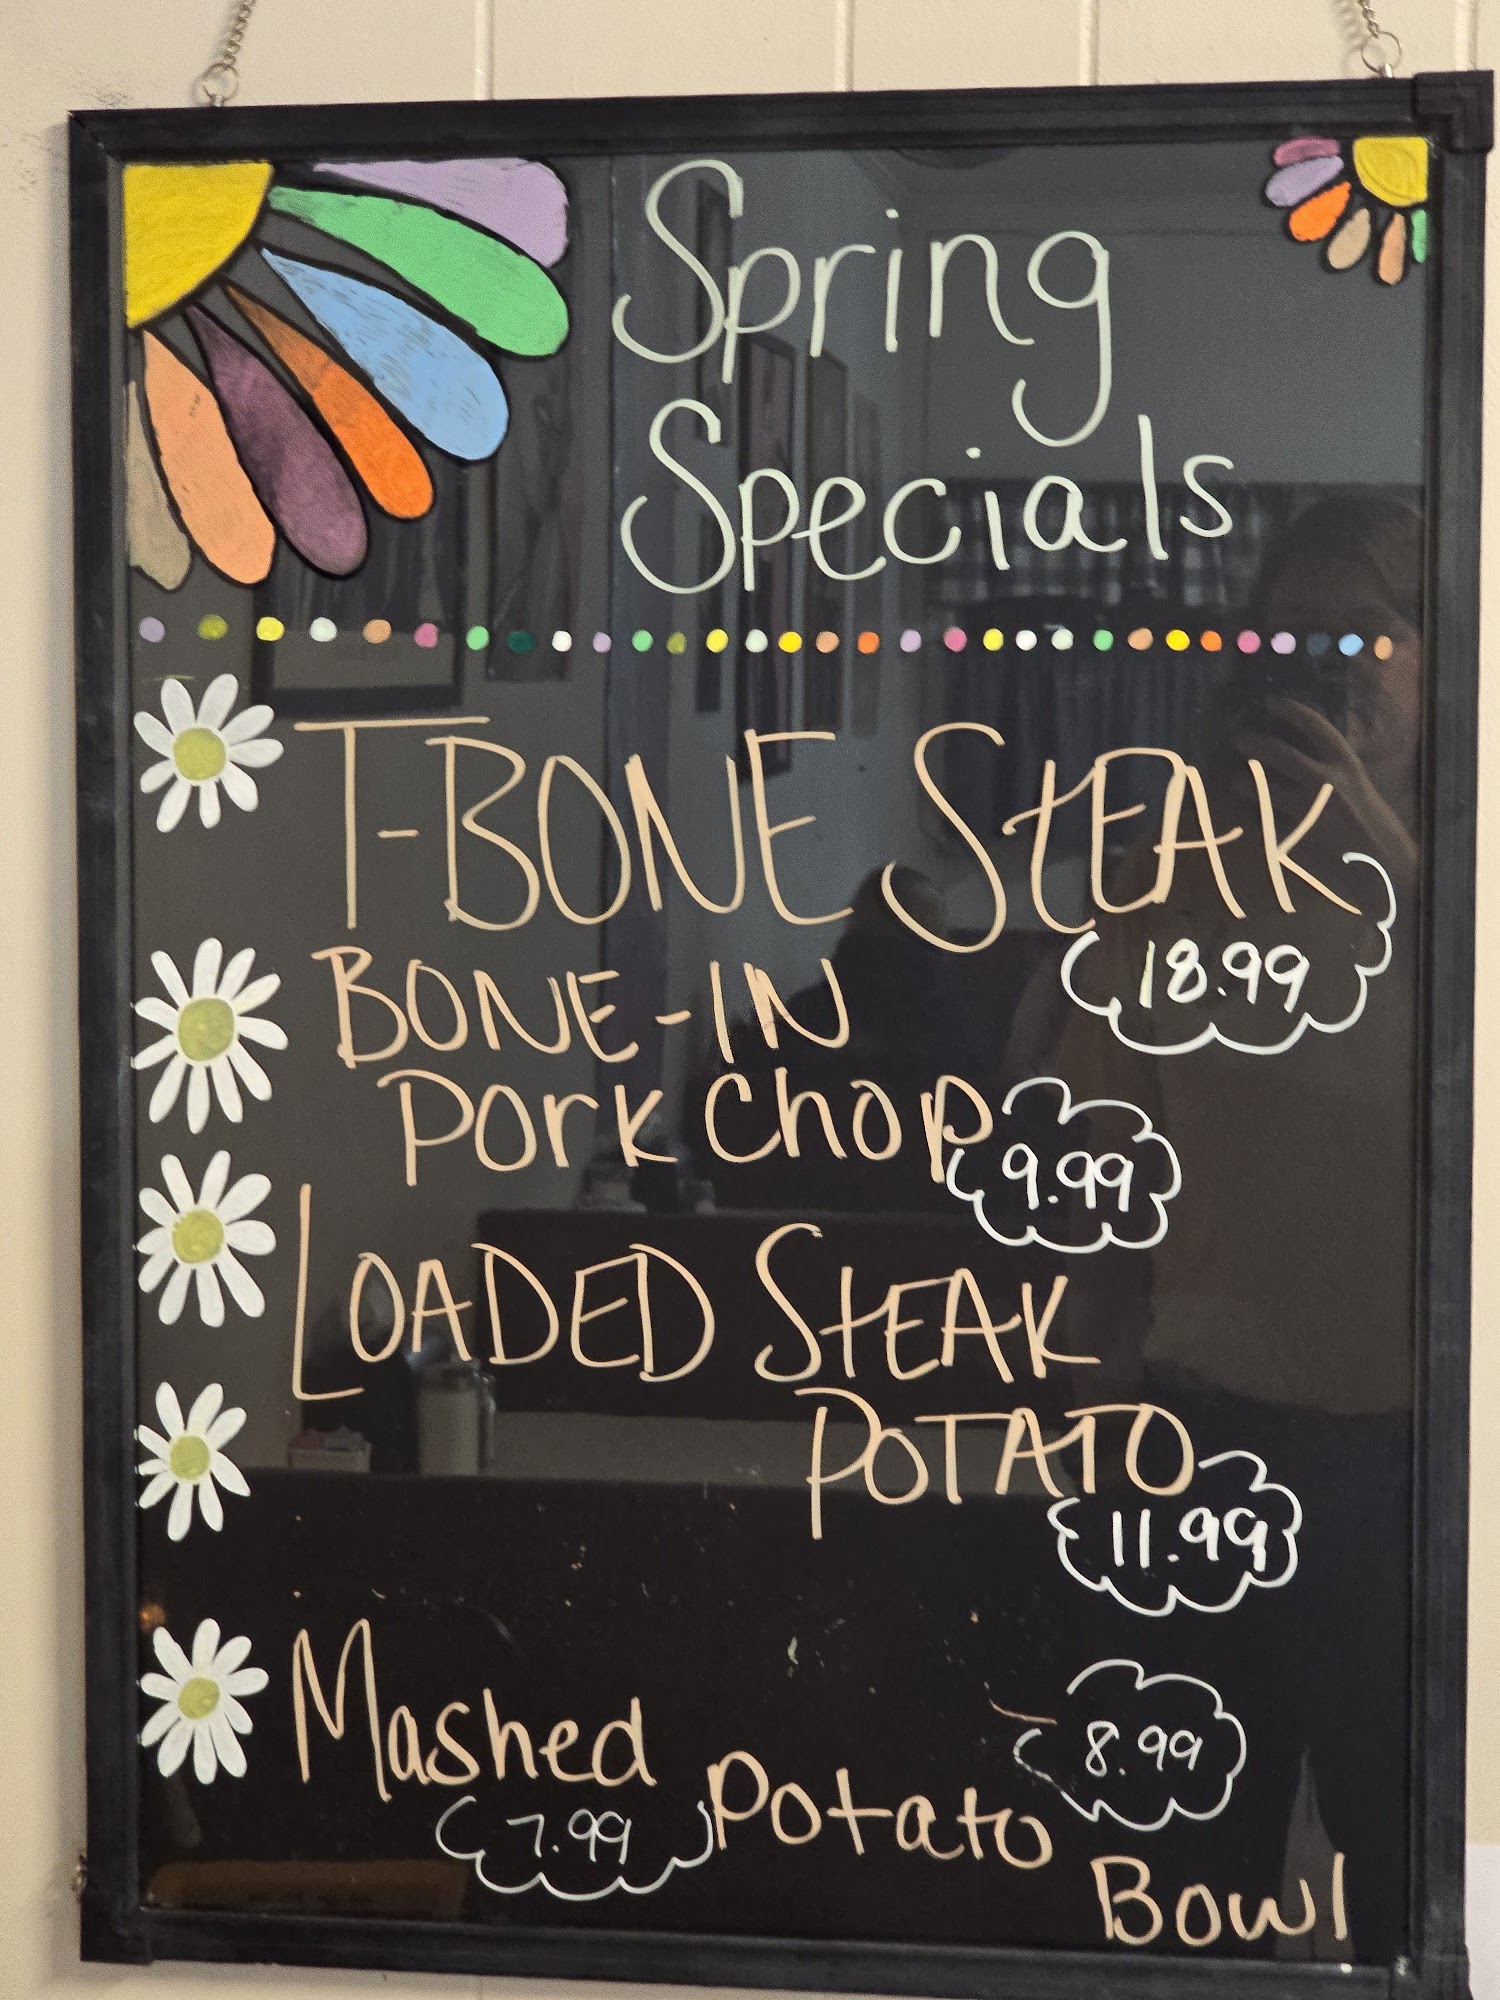 Spring
Specials
T-BONE STEAK
18.99
BONE-IN
Pork Chop
9.99
LOADED STEAK
POTATO
11.99
Mashed
8.99
7.99
Potato
Bowl